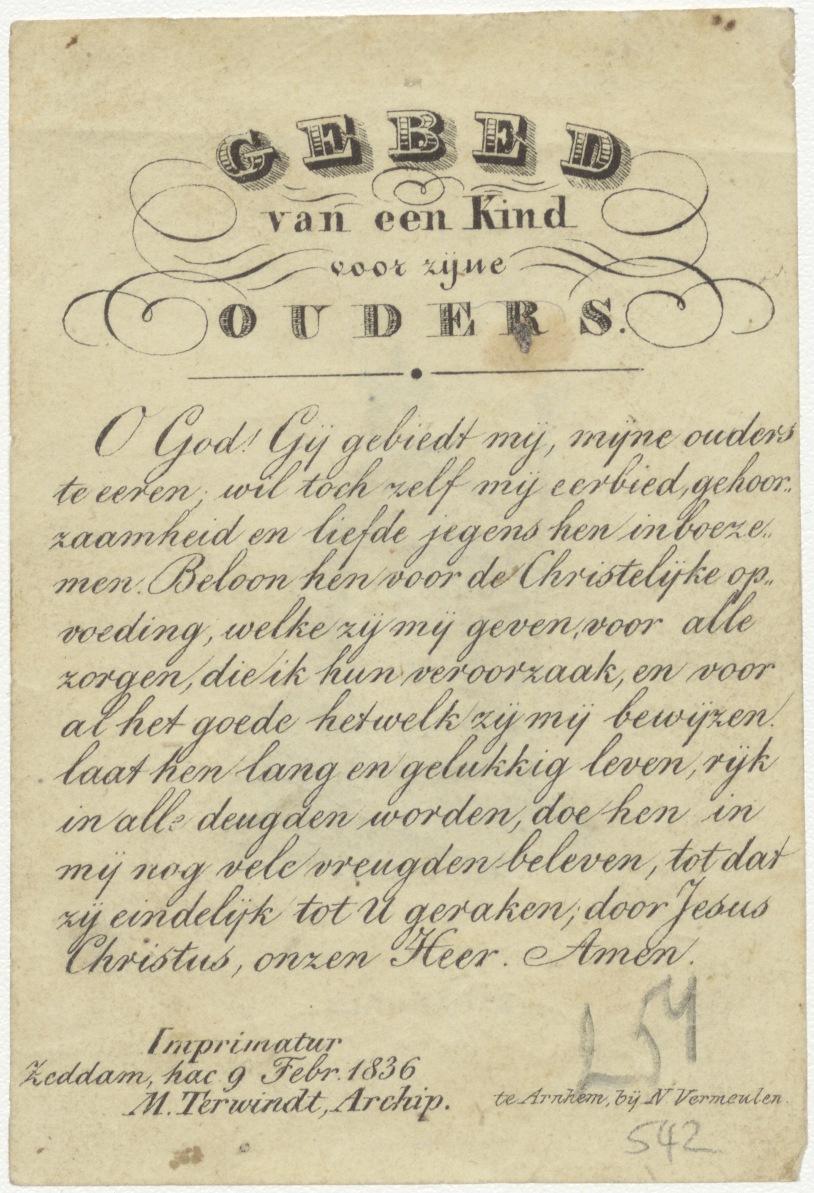 GEBED
van een Kind
voor zijne
OUDERS.
O God! Gij gebiedt mij, mijne ouders
te eeren; wil toch zelf mij eerbied, gehoor„
zaamheid en liefde jegens hen inboeze„
men. Beloon hen voor de Christelijke op„
voeding, welke zij mij geven, voor alle
zorgen, die ik hun veroorzaak, en voor
al het goede hetwelk zij mij bewijzen.
laat hen lang en gelukkig leven, rijk
in alle deugden worden, doe hen in
mij nog vele vreugden beleven, tot dat
zij eindelijk tot U geraken; door Jesus
Christus, onzen Heer. Amen.
Imprimatur
Zeddam, hac 9 Febr. 1836
M. Terwindt, Archip.
te Arnhem, bij N Vermeulen.
542